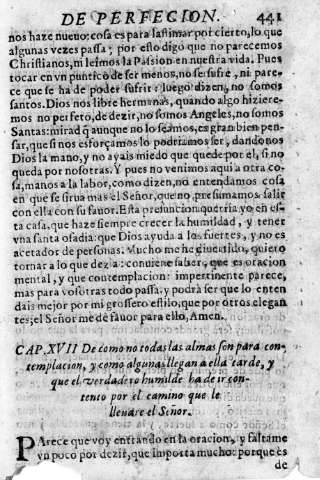 DE PERFECION. 441
nos haze nueuo: cosa es para lastimar por cierto, lo que
algunas vezes passa; por esto digo que no parecemos
Christianos, ni leimos la Passion en nuestra vida. Pues
tocar en vn puntico de ser menos, no se sufre, ni pare-
ce que se ha de poder sufrir: luego dizen, no somos
santos. Dios nos libre hermanas, quando algo hiziere-
mos no perfeto, de dezir, no somos Angeles, no somos
Santas: mirad q̃ aunque no lo seamos, es gran bien pen-
sar, que si nos esforçamos lo podriamos ser, dandonos
Dios la mano, y no ayais miedo que quede por el, si no
queda por nosotras. Y pues no venimos aqui a otra co-
sa, manos a la labor, como dizen, no entendamos cosa
en que se sirua mas el Señor, que no presumamos salir
con ella con su fauor. Esta presuncion querria yo en es-
ta casa, que haze siempre crecer la humildad, y tener
vna santa osadia: que Dios ayuda a los fuertes, y no es
acetador de personas. Mucho me he diuertido, quiero
tornar a lo que dezia: conuiene saber, que es oracion
mental, y que contemplacion: impertinente parece,
mas para vosotras todo passa, y podrá ser que lo enten
dais mejor por mi grossero estilo, que por otros elegan
tes; el Señor me dé fauor para ello, Amen.
CAP. XVII De como no todas las almas son para con-
templacion, y como algunas llegan a ella tarde, y
que el verdadero humilde ha de ir con-
tento por el camino que le
lleuare el Señor.
PArece que voy entrando en la oracion, y faltame
vn poco por dezir, que importa mucho: porque es
de